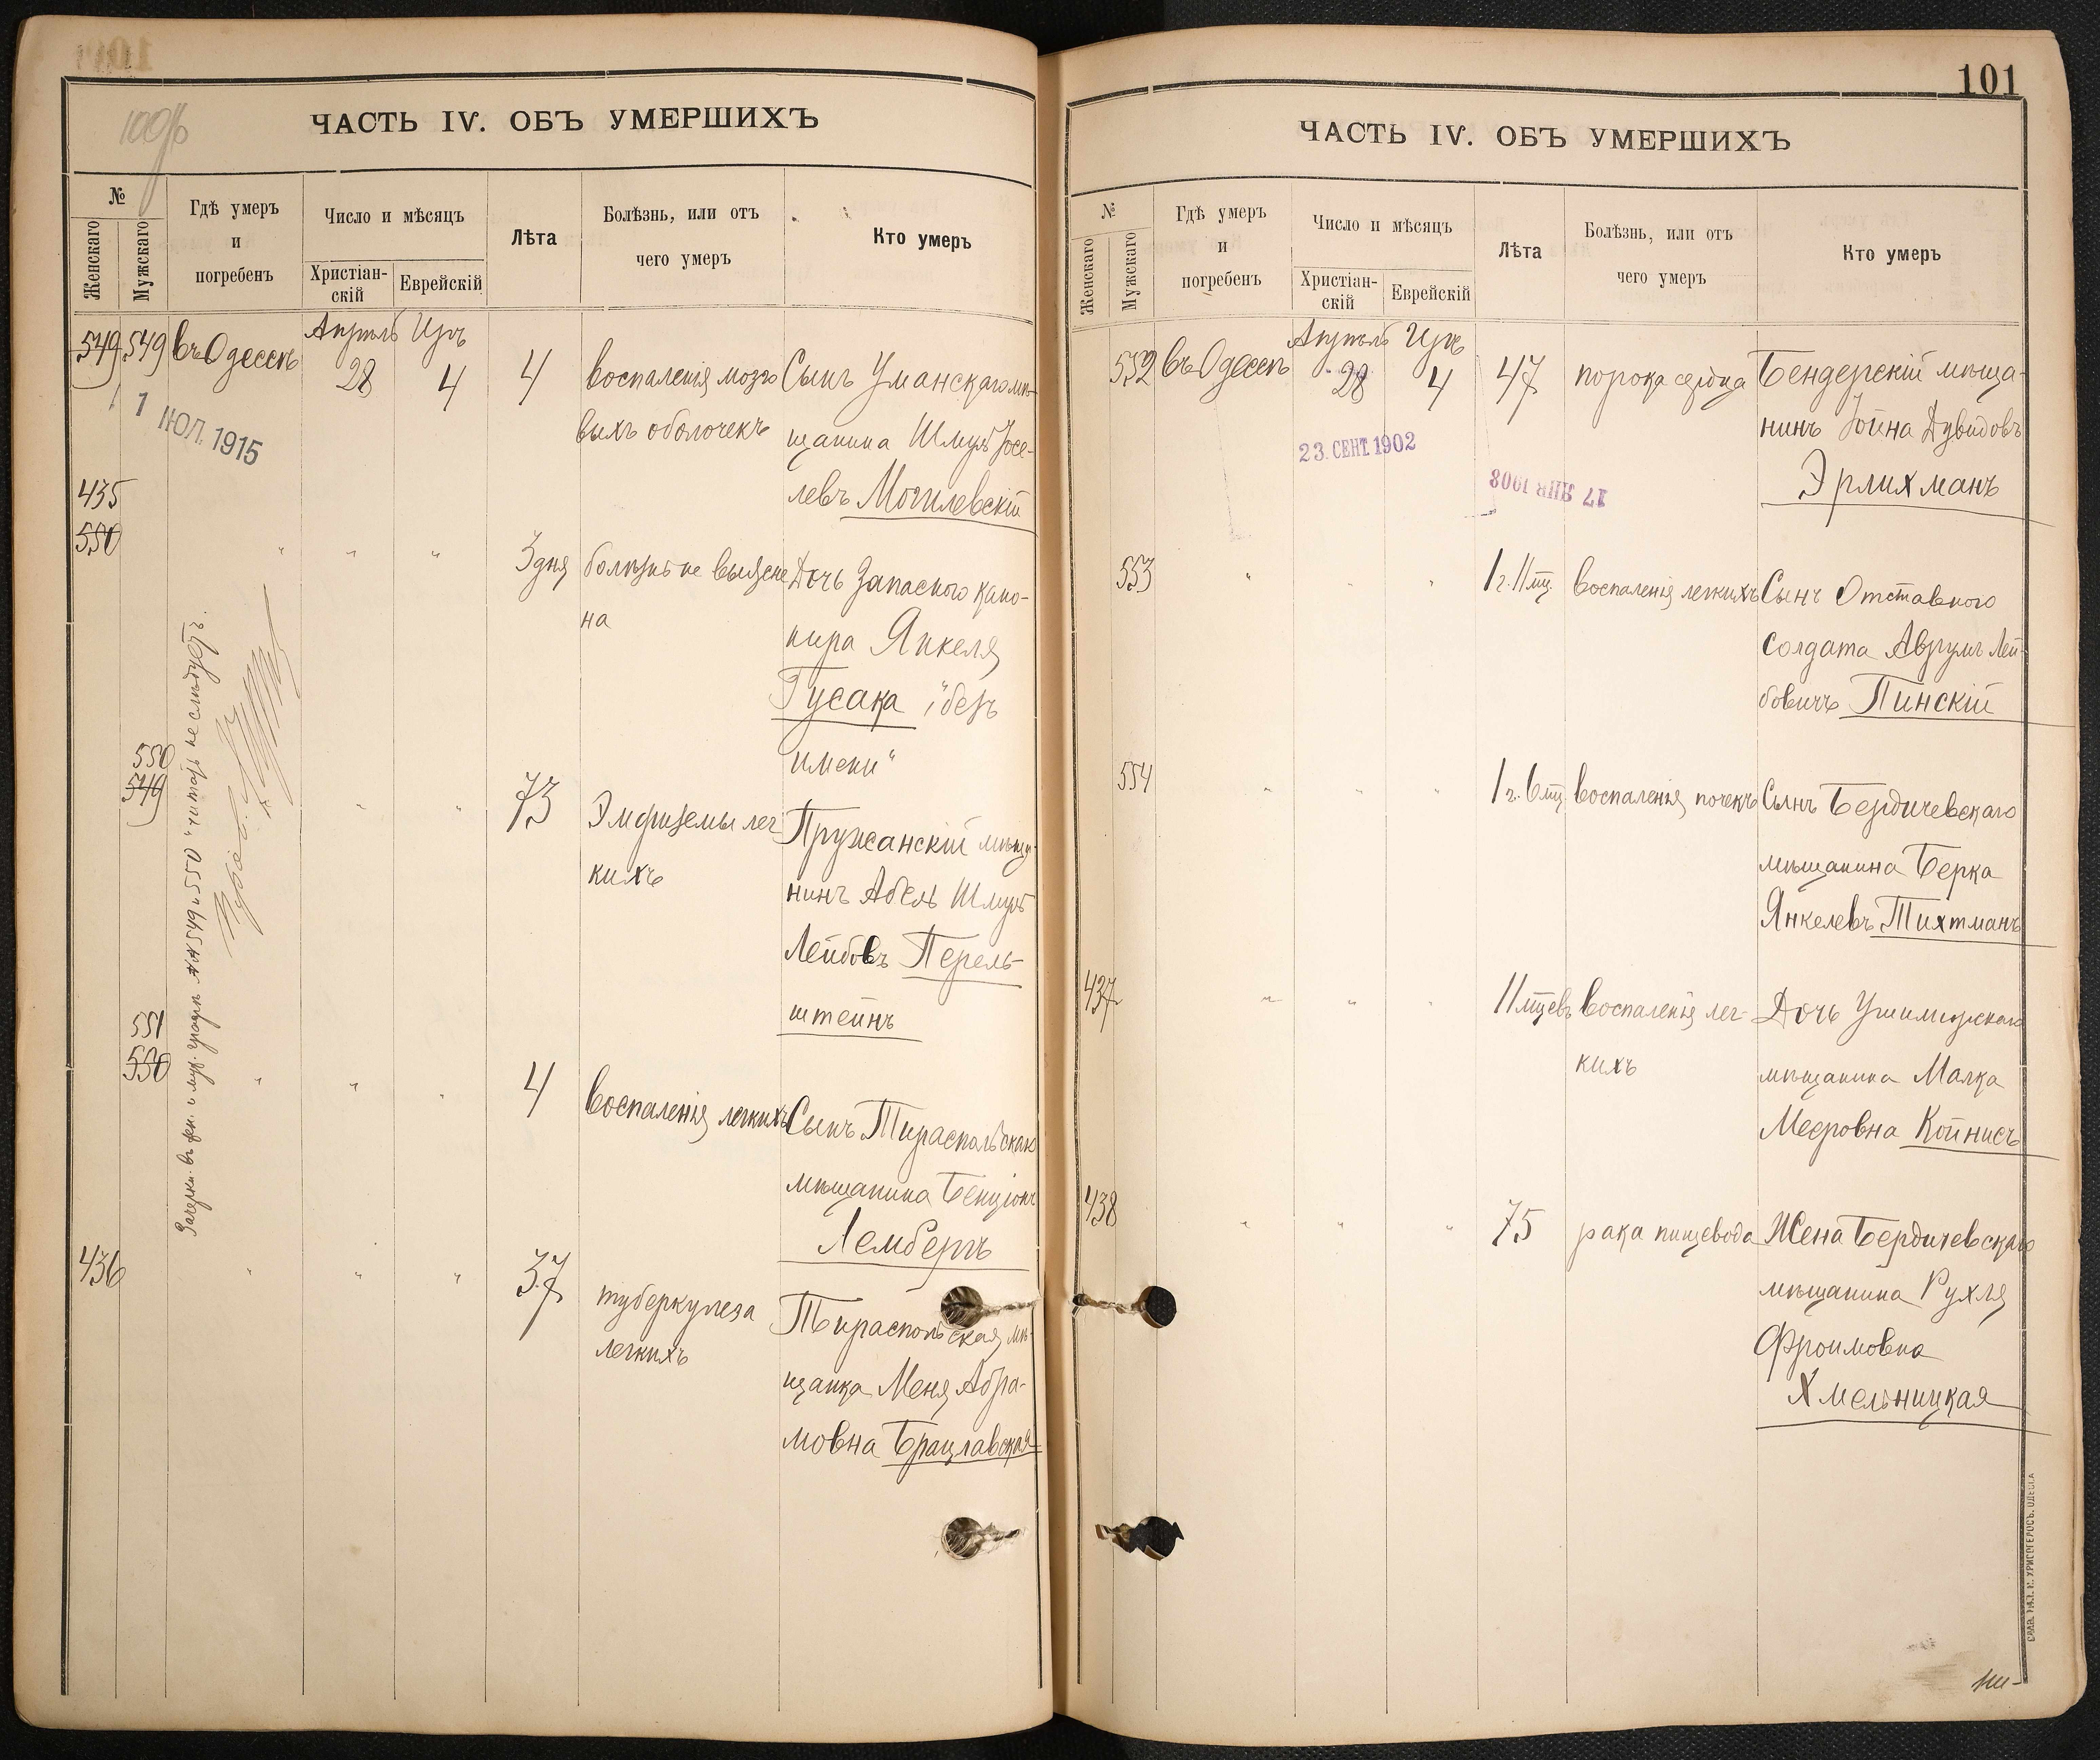 100 об
ЧАСТЬ IV. ОБЪ УМЕРШИХЪ
№
Женскаго
Мужскаго
Гдѣ умеръ
и
погребенъ
Число и мѣсяцъ
Христіан-
скій
Еврейскій
Лѣта
Болѣзнь, или отъ
чего умеръ
Кто умеръ
549 549 въ Одессѣ Апрѣль 28 Иръ 4 4 воспаленія мозго Сынъ Уманскаго мѣ-
выхъ оболочекъ щанина Шмуль Іосе-
левъ Могилевскій
1 ІЮЛ. 1915
435
550 " " " 3 дня болѣзнь не выясне Дочь Запаснаго кано-
на нира Янкеля
Гусака "безъ
имени"
550
549 " " 73 Эмфиземы лег Пружанскій мѣща-
кихъ нинъ Абель Шмуль
Лейбовъ Перель-
штейнъ
551
550 " " " 4 воспаленія легкихъ Сынъ Тираспольскаго
мѣщанина Бенціонъ
Лембергъ
436 " " " 37 туберкулеза Тираспольская мѣ-
легкихъ щанка Меня Абра-
мовна Брацлавская
Зачеркн. въ жен. и муж. графѣ №№ 549 и 550 читать не слѣдуетъ.
101
ЧАСТЬ IV. ОБЪ УМЕРШИХЪ
№
Женскаго
Мужскаго
Гдѣ умеръ
и
погребенъ
Число и мѣсяцъ
Христіан-
скій
Еврейскій
Лѣта
Болѣзнь, или отъ
чего умеръ
Кто умеръ
552 въ Одессѣ Апрѣль 28 Иръ 4 47 порока сердца Бендерскій мѣща-
нинъ Іойна Дувидовъ
Эрлихманъ
23. СЕНТ. 1902
17 ЯНВ 1908
553 " " " 1 г. 11 мц. воспаленія легкихъ Сынъ Отставного
солдата Аврумъ Лей-
бовичъ Пинскій
554 " " " 1 г. 6 мц. воспаленія почекъ Сынъ Бердичевскаго
мѣщанина Берка
Янкелевъ Тихтманъ
437 " " " 11 мцевъ воспаленія лег- Дочь
кихъ мѣщанина Малка
Мееровна Койнисъ
438 " " " 75 рака пищевода Жена Бердичевскаго
мѣщанина Рухля
Фроимовна
Хмельницкая
СКЛАД. ТИП. И. ХРИСОГЕЛОСЪ. ОДЕССА